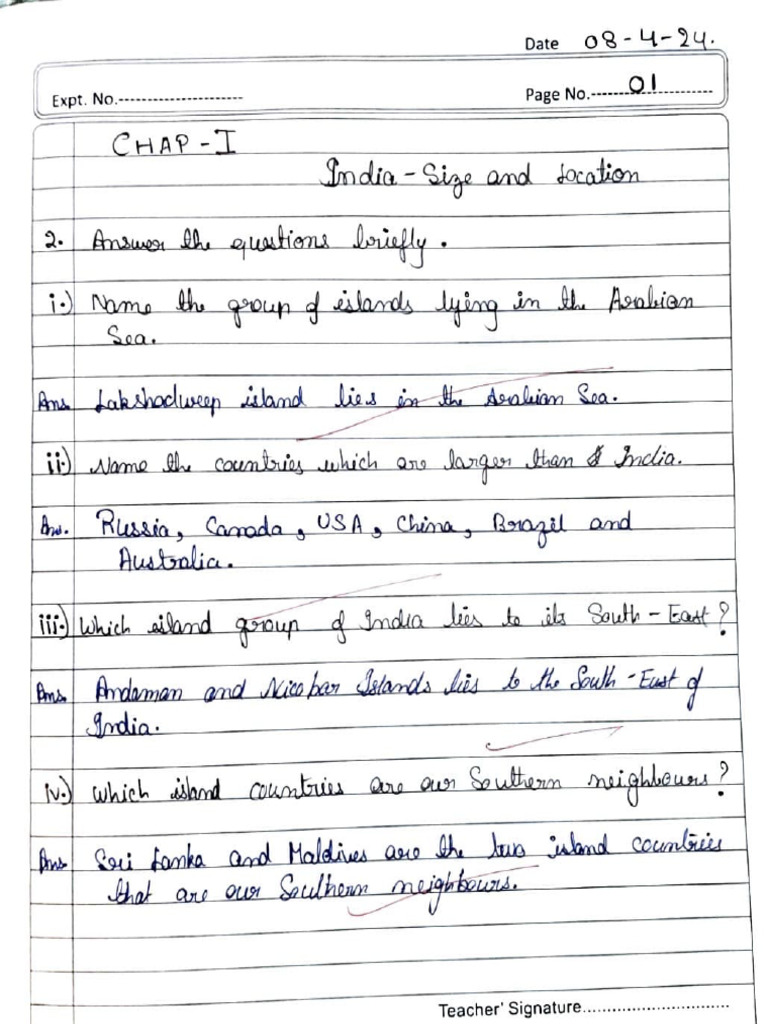 Date 08-4-24.
Expt. No.---------------------- Page No.------01--------------
CHAP-I
India-Size and Location
2. Answer the questions briefly.
i.) Name the group of islands lying in the Arabian
Sea.
Ans. Lakshadweep island lies in the Arabian Sea.
ii.) Name the countries which are larger than India.
Ans. Russia, Canada, USA, China, Brazil and
Australia.
iii.) Which island group of India lies to its South-East?
Ans. Andaman and Nicobar Islands lies to the South-East of
India.
iv.) Which island countries are our Southern neighbours?
Ans Sri Lanka and Maldives are the two island countries
that are our Southern neighbours.
Teacher' Signature..............................